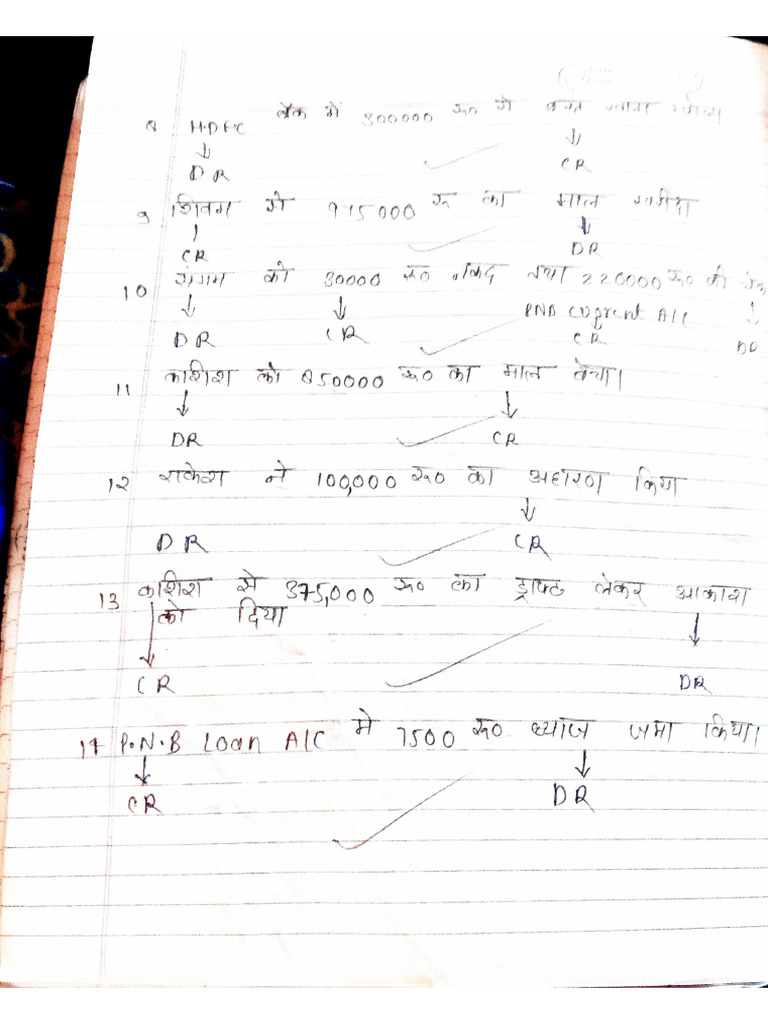 8 H.D.F.C बैंक में 300000 रू0 से बचत खाता खोला
DR CR
9 शिवम से 975000 रू का माल खरीदा
CR DR
10 संगम को 30000 रू0 नकद तथा 220000 रू0 की चेक
PNB Current A/C
DR CR CR DR
11 काशिश को 850000 रू0 का माल बेचा।
DR CR
12 राकेश ने 100,000 रू0 का अहारण किया
DR CR
13 काशिश से 375,000 रू0 का ड्राफ्ट लेकर आकाश
को दिया
CR DR
14 P.N.B Loan A/C मे 7500 रू0 ब्याज जमा किया।
CR DR